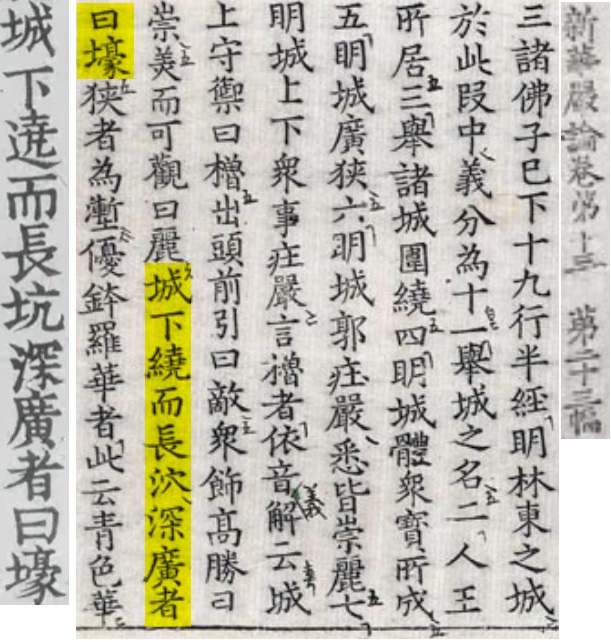 新華嚴論卷第十三 第二十三幅
三諸佛子巳下十九行半經明林東之城
於此段中義分為十一舉城之名二人王
所居三舉諸城圍繞四明城體衆寶所成
五明城廣狹六明城郭莊嚴悉皆崇麗七
明城上下衆事莊嚴言櫓者依音義解云城
上守禦曰櫓出頭前引曰敵衆飾高勝曰
崇美而可觀曰麗城下繞而長沆深廣者
曰壕狹者為塹優鉢羅華者此云青色華
城下遶而長坑深廣者曰壕